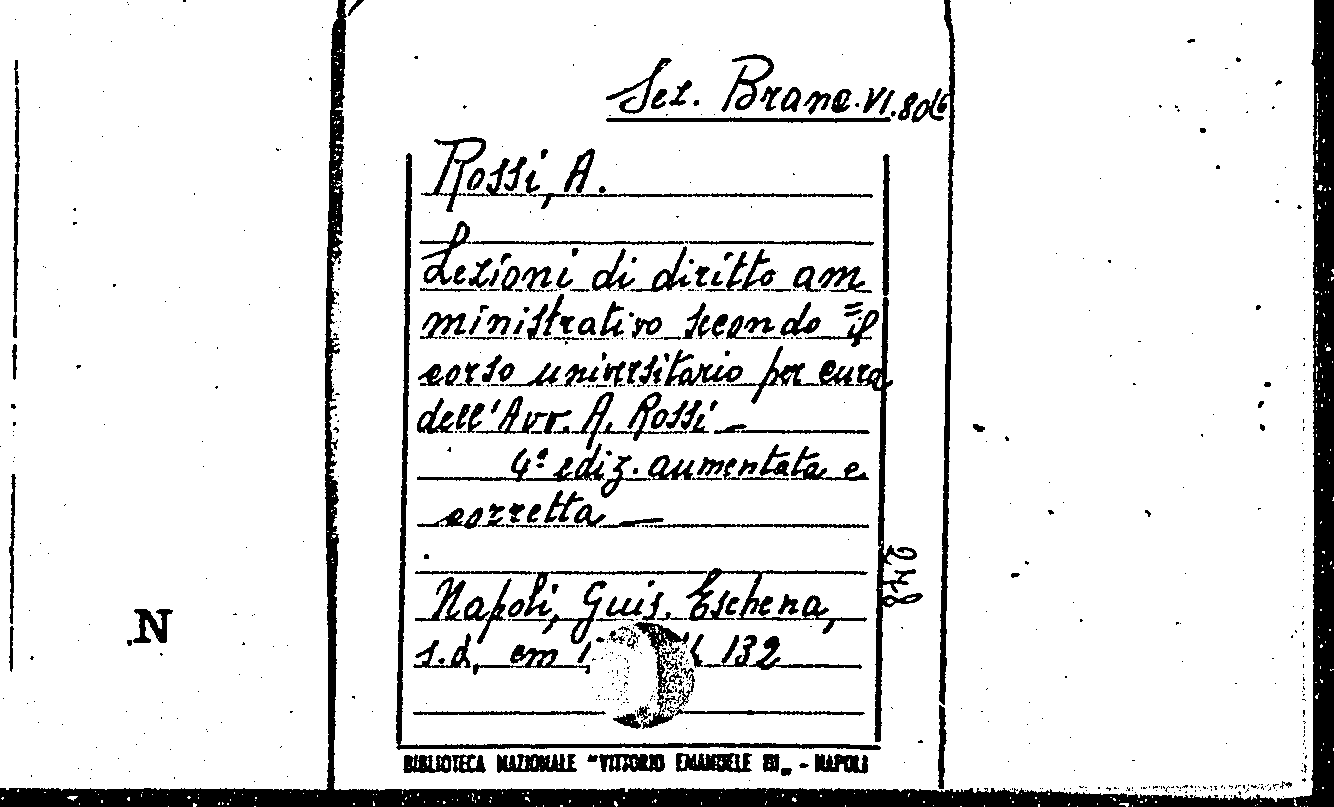 Sez. Branc. VI. 80
Rossi, A.
Lezioni di diritto am
ministrativo secondo il
corso universitario per cura
dell'Avv. A. Rossi —
4ª ediz. aumentata e
corretta —
Napoli, Guis. Eschena,
s.d., cm 132
2748
N
BIBLIOTECA NAZIONALE "VITTORIO EMANUELE III„ - NAPOLI